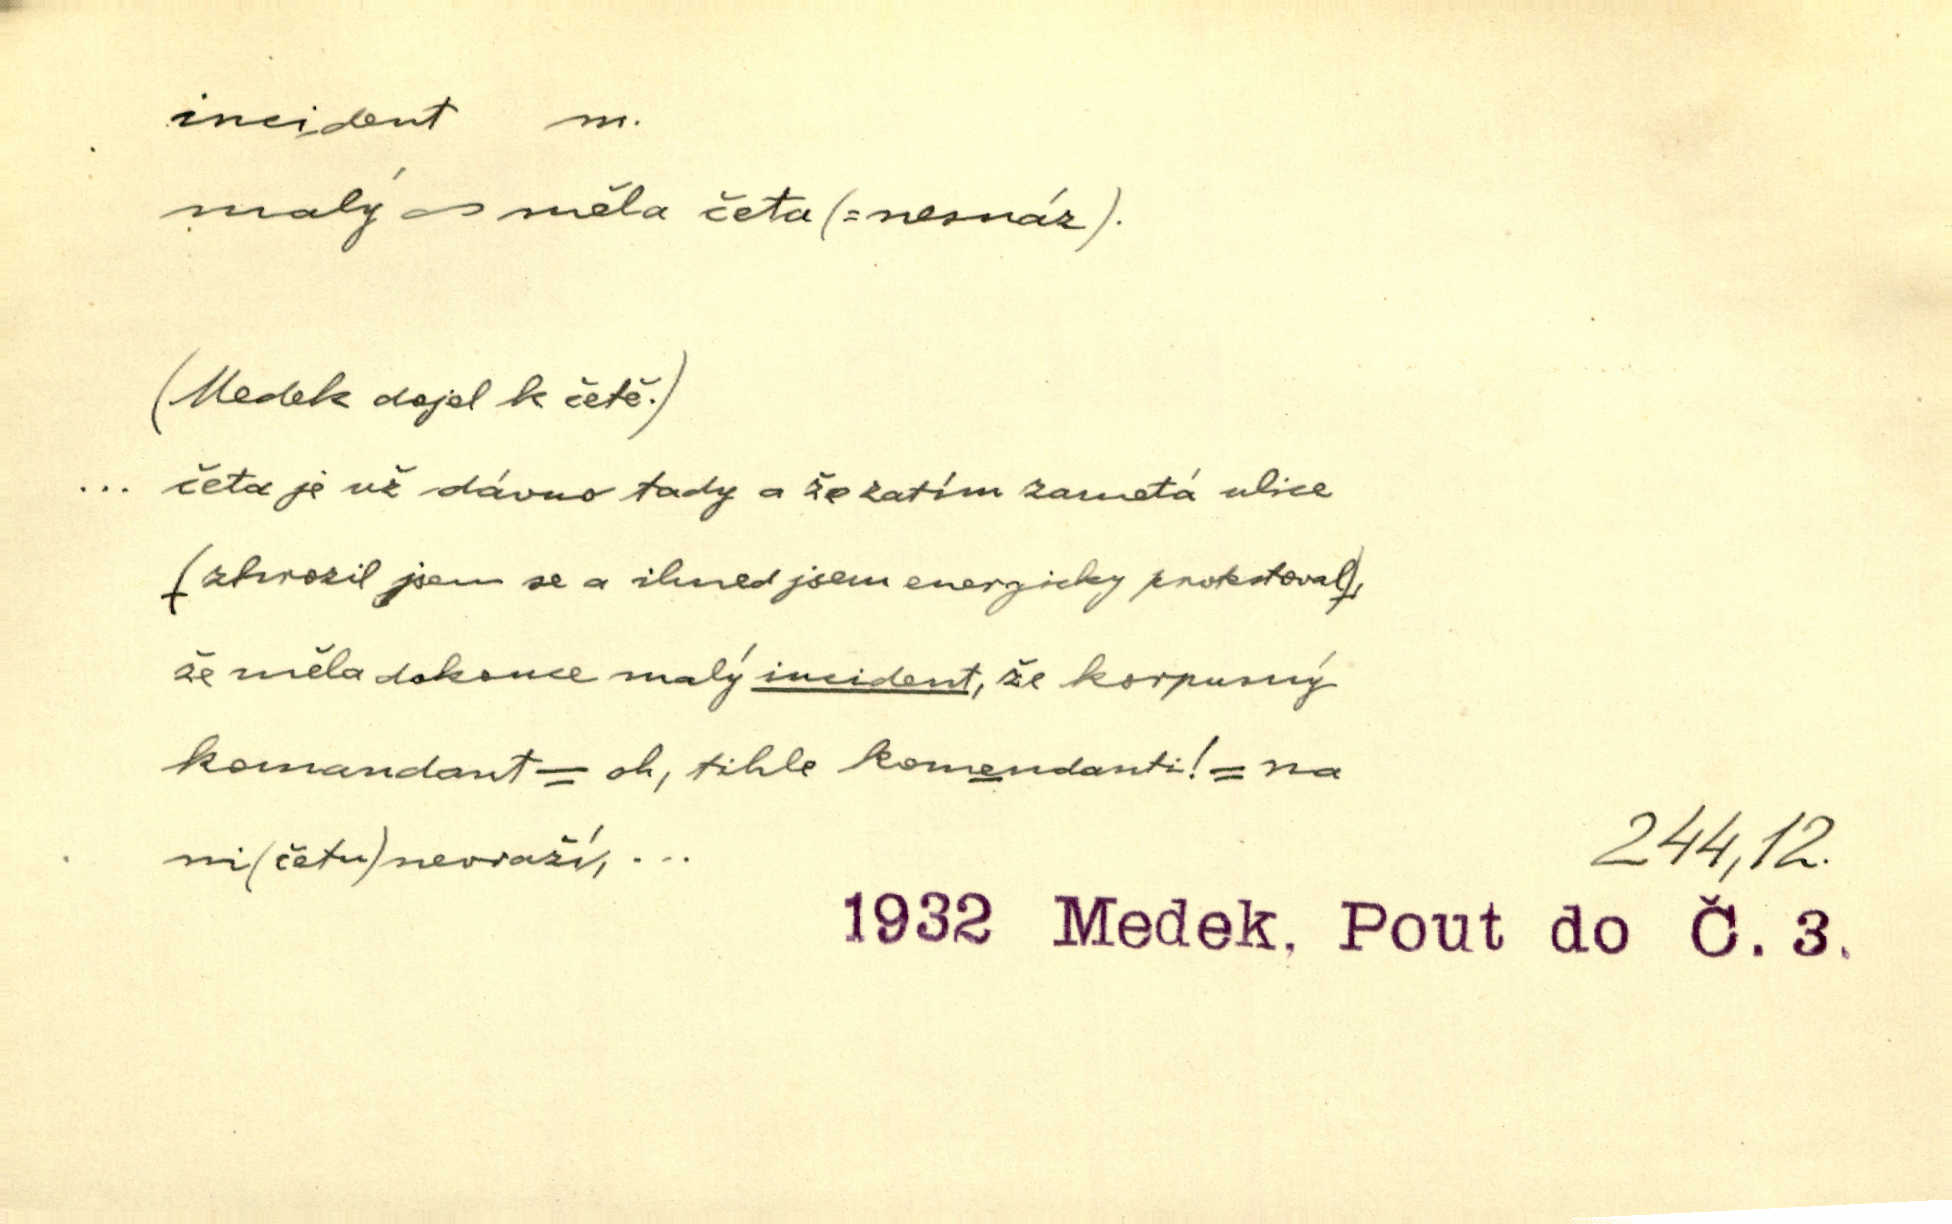 incident m.
malý ~ měla četa (= nesnáz).
(Medek dojel k četě.)
... četa je už dávno tady a že zatím zametá ulice
(zhrozil jsem se a ihned jsem energicky protestoval),
že měla dokonce malý incident, že korpusný
komandant = oh, tihle komendanti! = na
ni (četu) nevraží, ...
244,12.
1932 Medek, Pout do Č. 3.